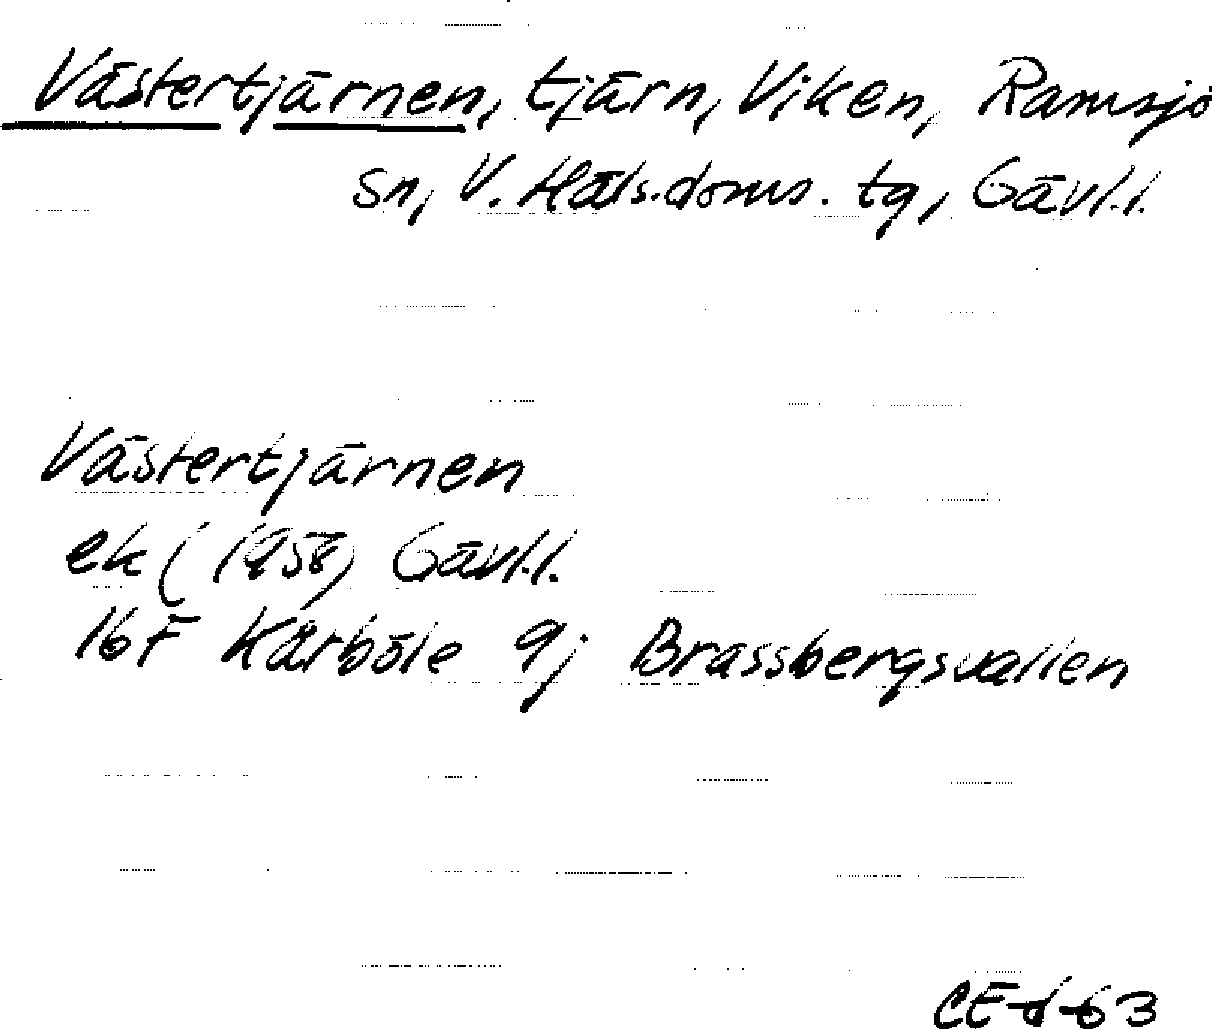 Västertjärnen, tjärn, Viken, Ramsjö
sn, V. Häls. doms. tg, Gävl.l.
Västertjärnen
ek (1958) Gävl.l.
16F Kårböle 9j Brassbergsvallen
CE-d-63